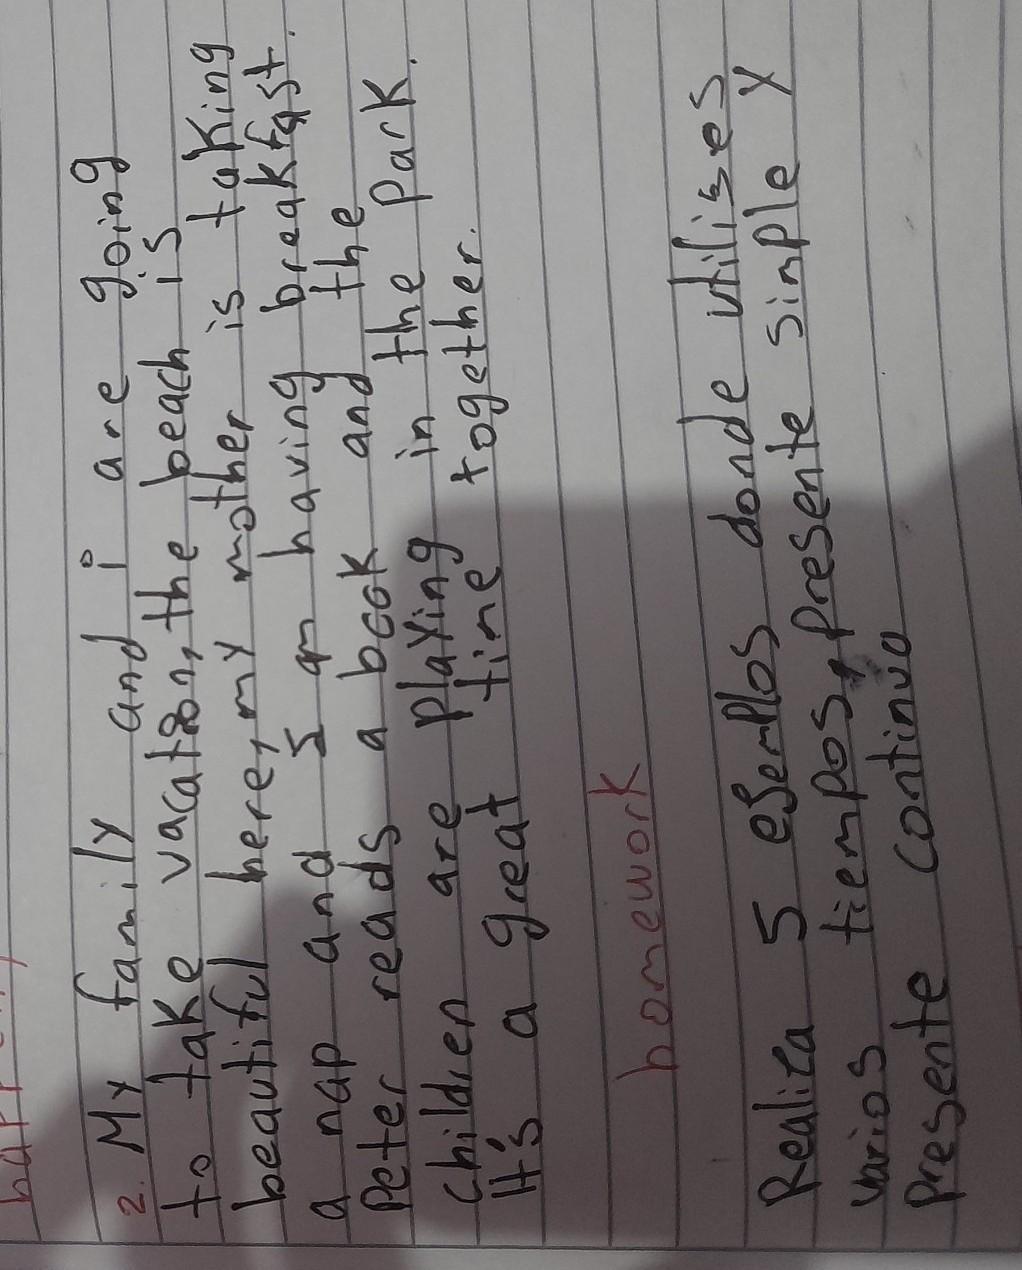 2. My family and i are going
to take vacation, the beach is
beautiful here, my mother is taking
a nap and I am having breakfast.
Peter reads a book and the
children are playing in the park.
It's a great time together.
homework
Realiza 5 ejemplos donde utilises
varios tiempos, presente simple y
presente continuo